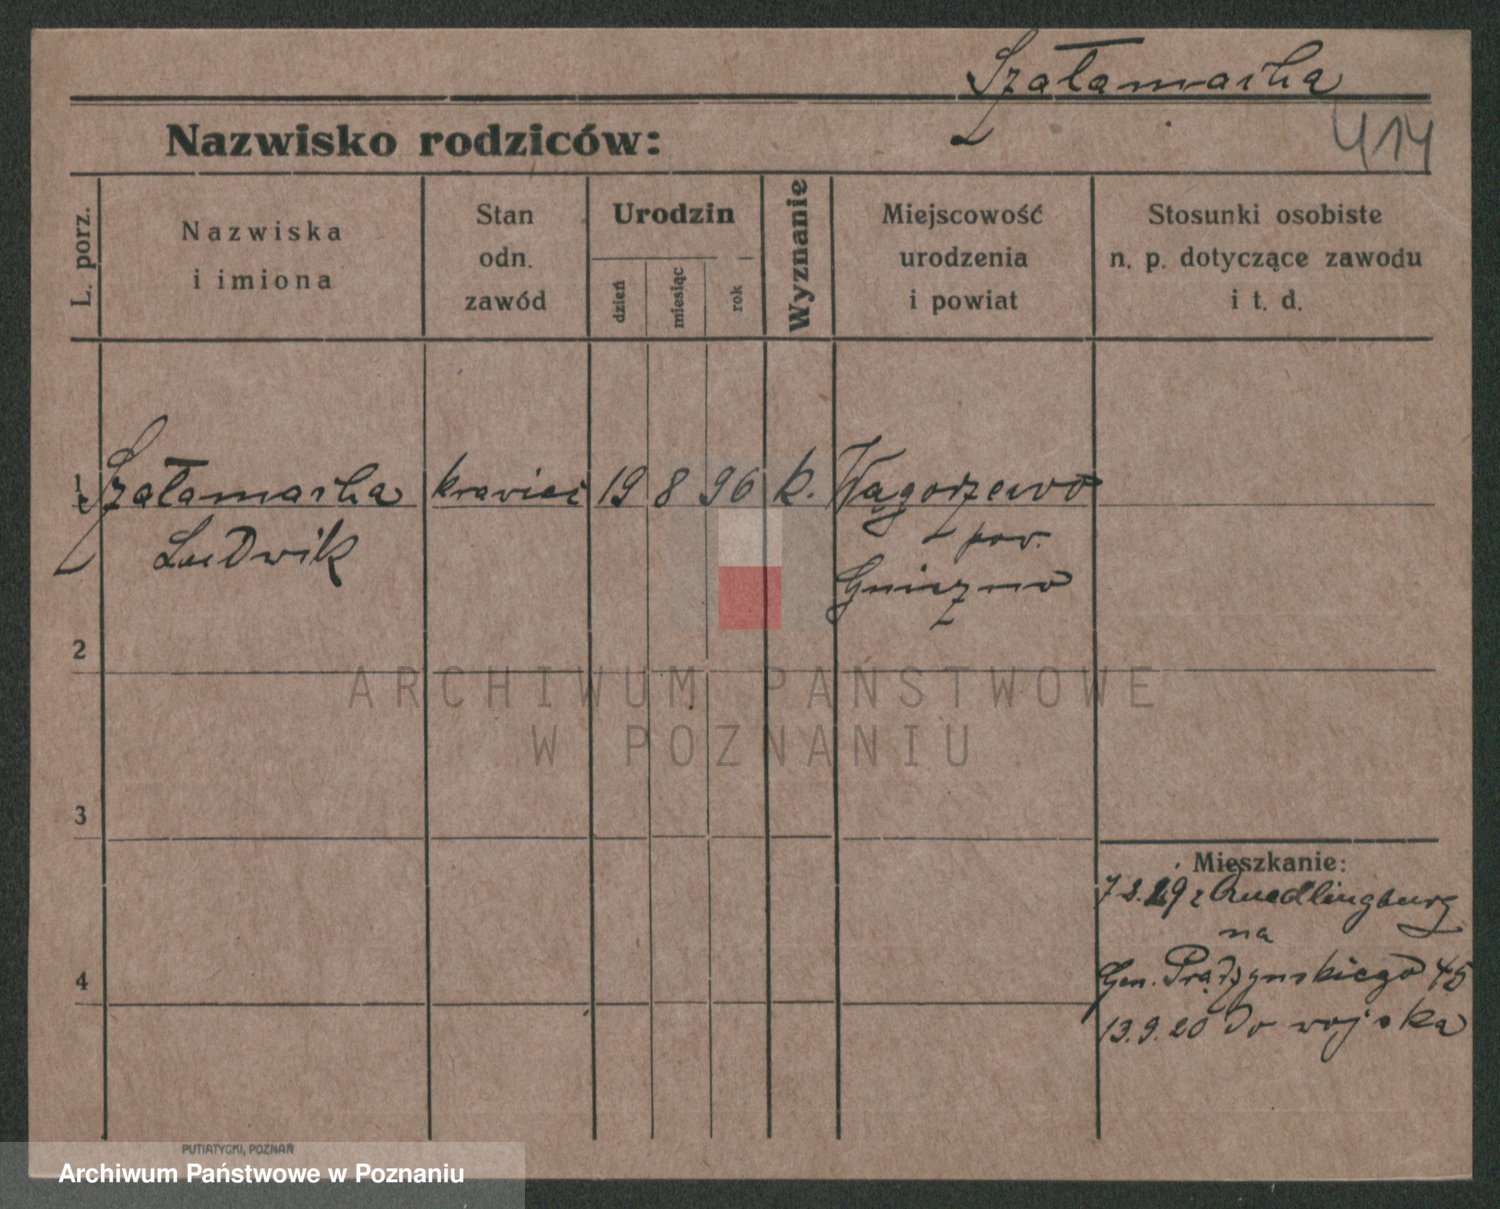 Szałamacha
Nazwisko rodziców:
414
L. porz.
Nazwiska
i imiona
Stan
odn.
zawód
Urodzin
dzień
miesiąc
rok
Wyznanie
Miejscowość
urodzenia
i powiat
Stosunki osobiste
n. p. dotyczące zawodu
i t. d.
1 Szałamacha krawiec 19 8 96 k.
Ludwik
pow.
Gniezno
2
ARCHIWUM PAŃSTWOWE
W POZNANIU
3
Mieszkanie:
Quedlingburg
na
Gen. Prądzynskiego 45
4
13.9.20 do wojska
PUTIATYCKI, POZNAŃ
Archiwum Państwowe w Poznaniu